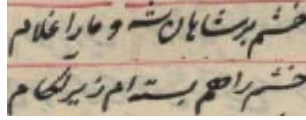 خشم بر شاهان شه و ما را غلام
خشم را هم بسته‌ام زیر لگام